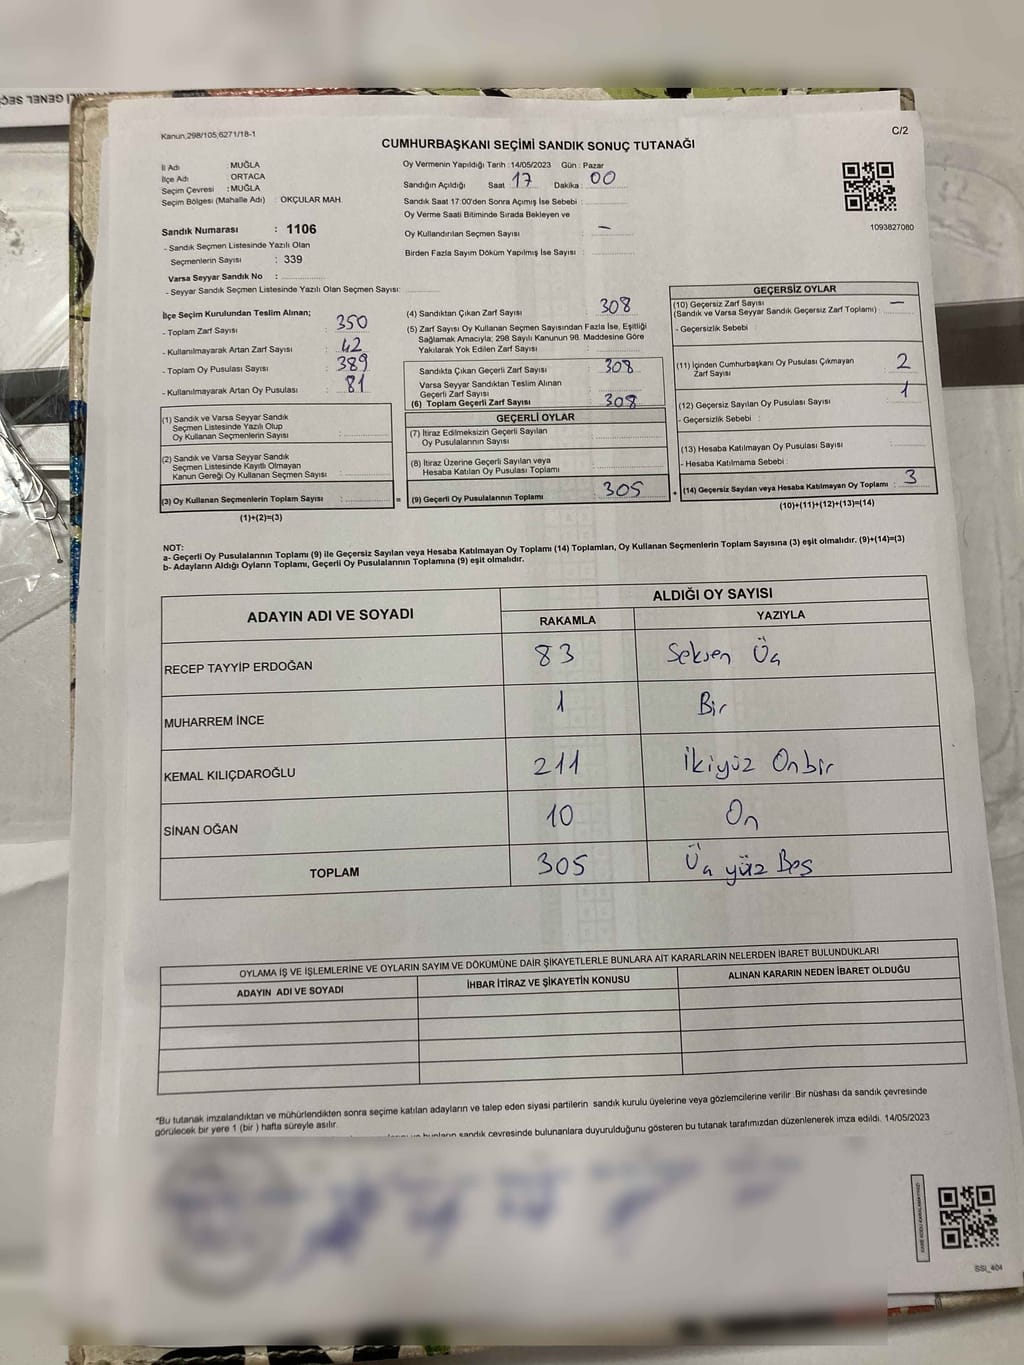 Kanun,298/105;6271/18-1
C/2
CUMHURBAŞKANI SEÇİMİ SANDIK SONUÇ TUTANAĞI
İl Adı : MUĞLA
İlçe Adı : ORTACA
Seçim Çevresi : MUĞLA
Seçim Bölgesi (Mahalle Adı) : OKÇULAR MAH.
Oy Vermenin Yapıldığı Tarih : 14/05/2023 Gün : Pazar
Sandığın Açıldığı Saat 17 Dakika : 00
Sandık Saat 17:00'den Sonra Açımış İse Sebebi :
Oy Verme Saati Bitiminde Sırada Bekleyen ve
Oy Kullandırılan Seçmen Sayısı : –
Birden Fazla Sayım Döküm Yapılmış İse Sayısı :
1093827080
Sandık Numarası : 1106
- Sandık Seçmen Listesinde Yazılı Olan
Seçmenlerin Sayısı : 339
Varsa Seyyar Sandık No :
- Seyyar Sandık Seçmen Listesinde Yazılı Olan Seçmen Sayısı:
İlçe Seçim Kurulundan Teslim Alınan;
- Toplam Zarf Sayısı : 350
- Kullanılmayarak Artan Zarf Sayısı : 42
- Toplam Oy Pusulası Sayısı : 389
- Kullanılmayarak Artan Oy Pusulası : 81
(1) Sandık ve Varsa Seyyar Sandık
Seçmen Listesinde Yazılı Olup
Oy Kullanan Seçmenlerin Sayısı :
(2) Sandık ve Varsa Seyyar Sandık
Seçmen Listesinde Kayıtlı Olmayan
Kanun Gereği Oy Kullanan Seçmen Sayısı :
(3) Oy Kullanan Seçmenlerin Toplam Sayısı :
(1)+(2)=(3)
(4) Sandıktan Çıkan Zarf Sayısı : 308
(5) Zarf Sayısı Oy Kullanan Seçmen Sayısından Fazla İse, Eşitliği
Sağlamak Amacıyla; 298 Sayılı Kanunun 98. Maddesine Göre
Yakılarak Yok Edilen Zarf Sayısı :
Sandıkta Çıkan Geçerli Zarf Sayısı : 308
Varsa Seyyar Sandıktan Teslim Alınan
Geçerli Zarf Sayısı :
(6) Toplam Geçerli Zarf Sayısı : 308
GEÇERLİ OYLAR
(7) İtiraz Edilmeksizin Geçerli Sayılan
Oy Pusulalarının Sayısı :
(8) İtiraz Üzerine Geçerli Sayılan veya
Hesaba Katılan Oy Pusulası Toplamı :
= (9) Geçerli Oy Pusulalarının Toplamı : 305
GEÇERSİZ OYLAR
(10) Geçersiz Zarf Sayısı –
(Sandık ve Varsa Seyyar Sandık Geçersiz Zarf Toplamı) :
- Geçersizlik Sebebi :
(11) İçinden Cumhurbaşkanı Oy Pusulası Çıkmayan
Zarf Sayısı : 2
(12) Geçersiz Sayılan Oy Pusulası Sayısı : 1
- Geçersizlik Sebebi :
(13) Hesaba Katılmayan Oy Pusulası Sayısı :
- Hesaba Katılmama Sebebi :
+ (14) Geçersiz Sayılan veya Hesaba Katılmayan Oy Toplamı : 3
(10)+(11)+(12)+(13)=(14)
NOT:
a- Geçerli Oy Pusulalarının Toplamı (9) ile Geçersiz Sayılan veya Hesaba Katılmayan Oy Toplamı (14) Toplamları, Oy Kullanan Seçmenlerin Toplam Sayısına (3) eşit olmalıdır. (9)+(14)=(3)
b- Adayların Aldığı Oyların Toplamı, Geçerli Oy Pusulalarının Toplamına (9) eşit olmalıdır.
ADAYIN ADI VE SOYADI
ALDIĞI OY SAYISI
RAKAMLA YAZIYLA
RECEP TAYYİP ERDOĞAN 83 Seksen Üç
MUHARREM İNCE 1 Bir
KEMAL KILIÇDAROĞLU 211 İkiyüz Onbir
SİNAN OĞAN 10 On
TOPLAM 305 Üç yüz Beş
OYLAMA İŞ VE İŞLEMLERİNE VE OYLARIN SAYIM VE DÖKÜMÜNE DAİR ŞİKAYETLERLE BUNLARA AİT KARARLARIN NELERDEN İBARET BULUNDUKLARI
ADAYIN ADI VE SOYADI İHBAR İTİRAZ VE ŞİKAYETİN KONUSU ALINAN KARARIN NEDEN İBARET OLDUĞU
*Bu tutanak imzalandıktan ve mühürlendikten sonra seçime katılan adayların ve talep eden siyasi partilerin sandık kurulu üyelerine veya gözlemcilerine verilir .Bir nüshası da sandık çevresinde
görülecek bir yere 1 (bir ) hafta süreyle asılır.
sandık çevresinde bulunanlara duyurulduğunu gösteren bu tutanak tarafımızdan düzenlenerek imza edildi. 14/05/2023
SSI_404